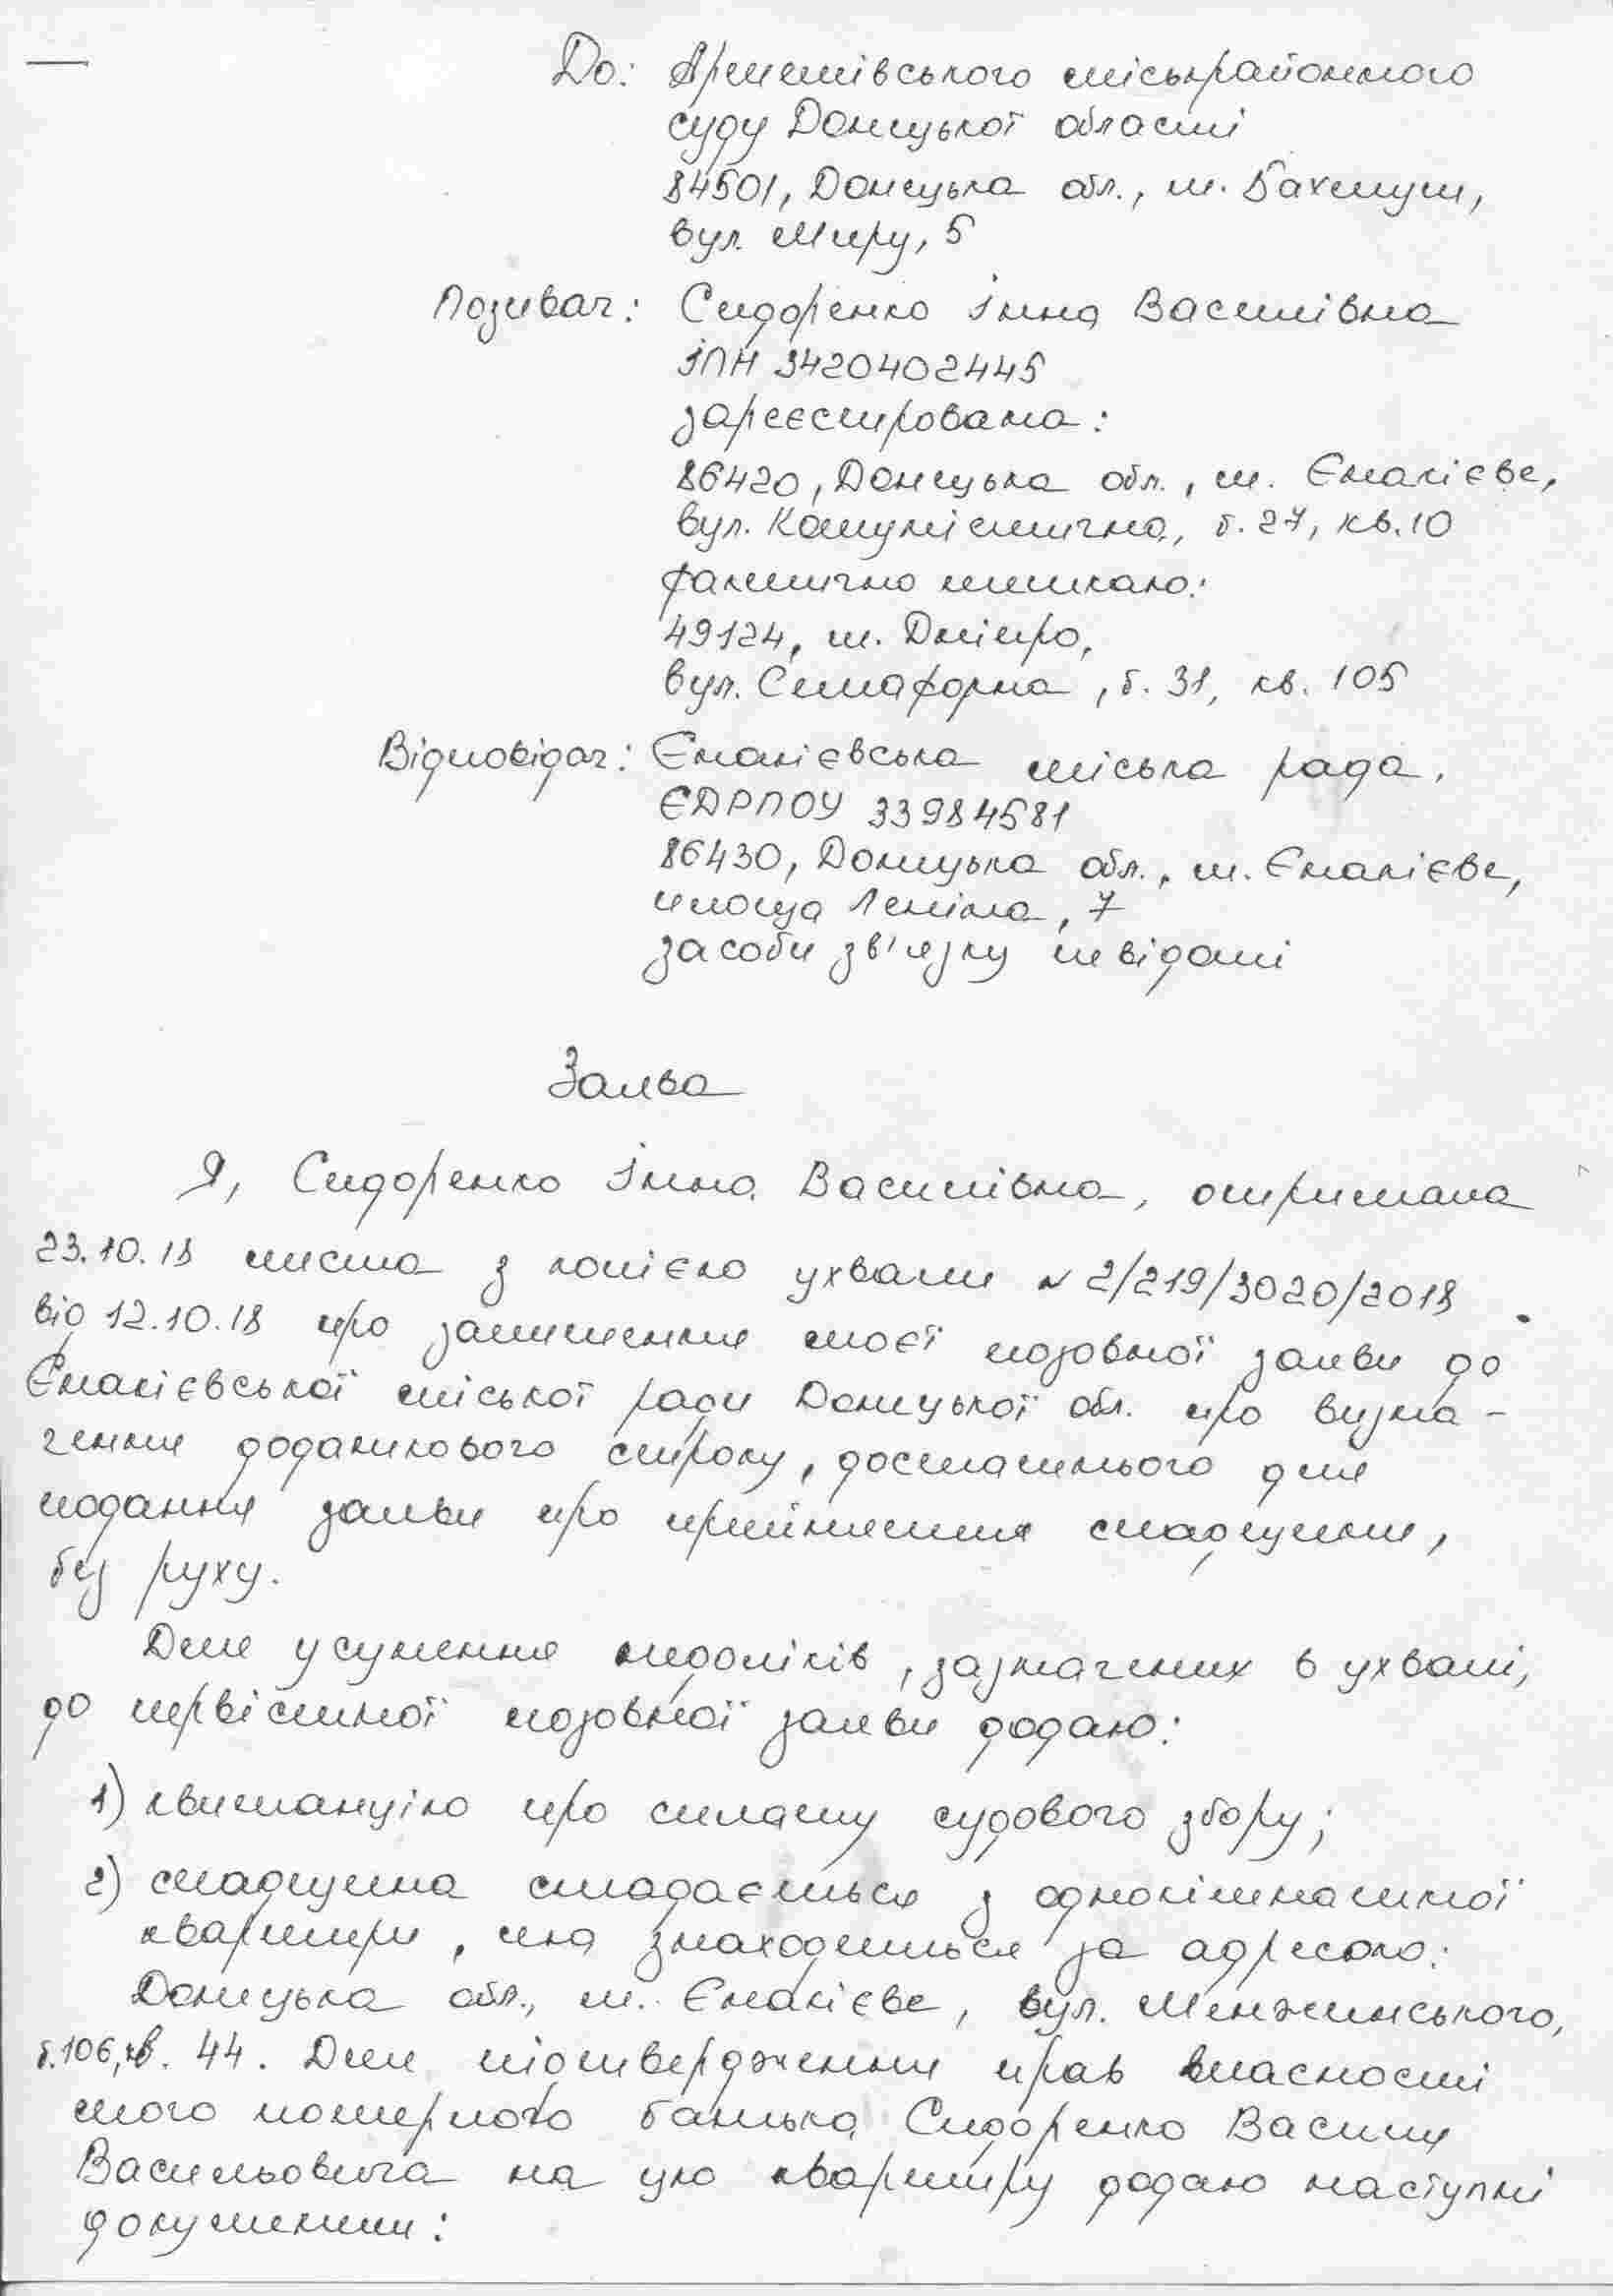 До: Артемівського міськрайонного
суду Донецької області
84501, Донецька обл., м. Бахмут,
вул. Миру, 5
Позивач: Сидоренко Інна Василівна
ІПН 3420402445
зареєстрована:
86420, Донецька обл., м. Єнакієве,
вул. Комуністична, б. 27, кв. 10
фактично мешкаю:
49124, м. Дніпро,
вул. Семафорна, б. 31, кв. 105
Відповідач: Єнакієвська міська рада,
ЄДРПОУ 33984581
86430, Донецька обл., м. Єнакієве,
площа Леніна, 7
засоби зв'язку невідомі
Заява
Я, Сидоренко Інна Василівна, отримала
23.10.18 листа з копією ухвали № 2/219/3020/2018
від 12.10.18 про залишення моєї позовної заяви до
Єнакієвської міської ради Донецької обл. про визна-
чення додаткового строку, достатнього для
подання заяви про прийняття спадщини,
без руху.
Для усунення недоліків, зазначених в ухвалі,
до первісткої позовної заяви додаю:
1) квитанцію про сплату судового збору;
2) спадщина складається з однокімнатної
квартири, яка знаходиться за адресою:
Донецька обл., м. Єнакієве, вул. Менжинського,
б.106, кв. 44. Для підтвердження прав власності
мого померлого батька Сидоренко Василя
Васильовича на цю квартиру додаю наступні
документи: